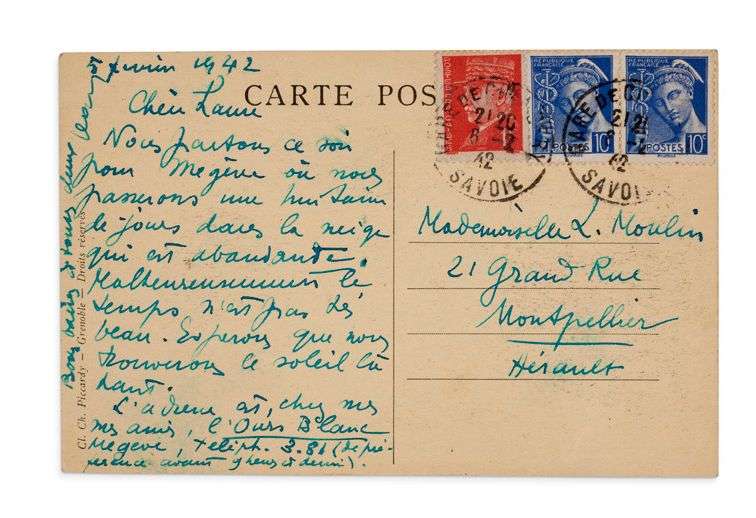 5 février 1942
CARTE POS
Chère Laure
Nous partons ce soir
pour Megève où nous
passerons une huitaine
de jours dans la neige
qui est abondante.
Malheureusement le
temps n'est pas très
beau. Espérons que nous
trouverons le soleil là
haut.
L'adresse est, chez mes
mes amis, l'Ours Blanc
Megève, téléph. 3.81 (de pré-
férence avant 9 heures et demi).
Bons baisers à toutes deux
Cl. Ch. Piccardy – Grenoble – Droits réservés
REPUBLIQUE
FRANÇAISE
POSTES 10c
REPUBLIQUE
FRANÇAISE
POSTES 10c
GARE DE CH
21 20
6 -2
42
SAVOIE
GARE DE C
21 2
-2
42
SAVOIE
Mademoiselle L. Moulin
21 Grand Rue
Montpellier
Hérault